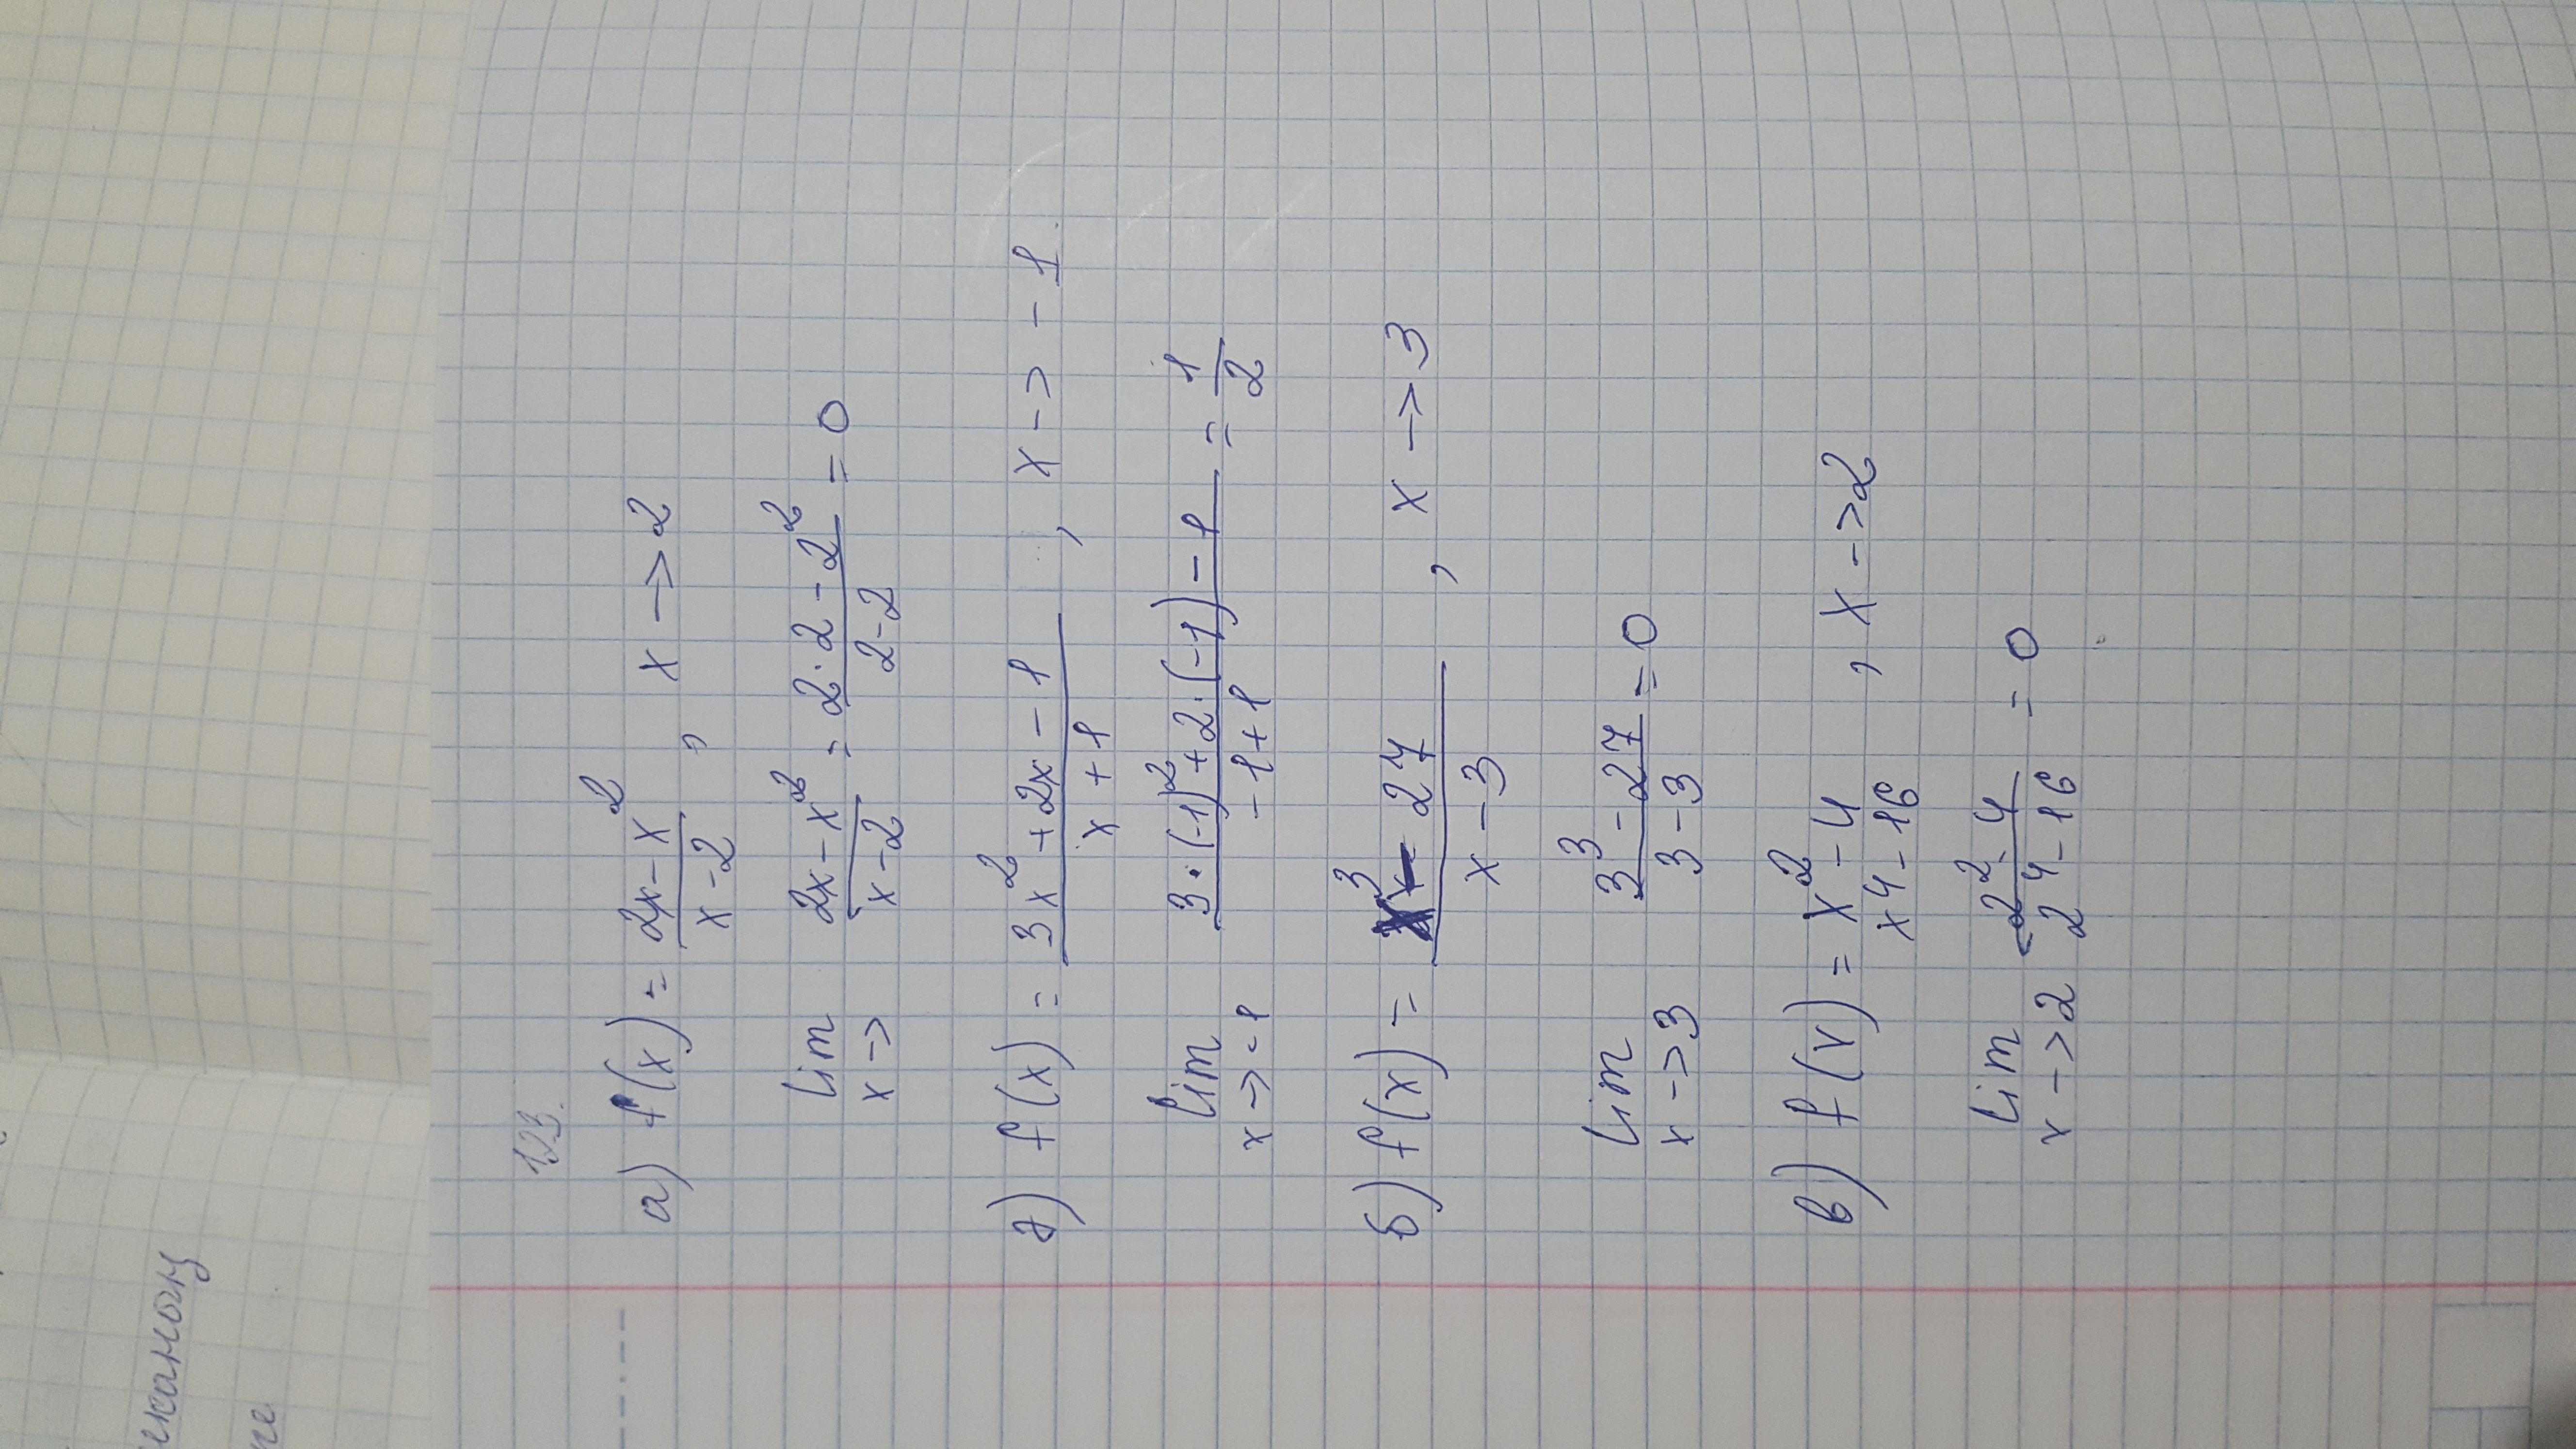 123.
а) f(x) = (2x - x²)/(x - 2), x -> 2
lim x-> (2x - x²)/(x - 2) = (2·2 - 2²)/(2-2) = 0
г) f(x) = (3x² + 2x - 1)/(x + 1), x -> - 1
lim x->-1 (3·(-1)² + 2·(-1) - 1)/(-1+1) = 1/2
б) f(x) = (x³ - 27)/(x - 3), x -> 3
lim x->3 (3³ - 27)/(3 - 3) = 0
в) f(x) = (x² - 4)/(x⁴ - 16), x -> 2
lim x->2 (2² - 4)/(2⁴ - 16) = 0